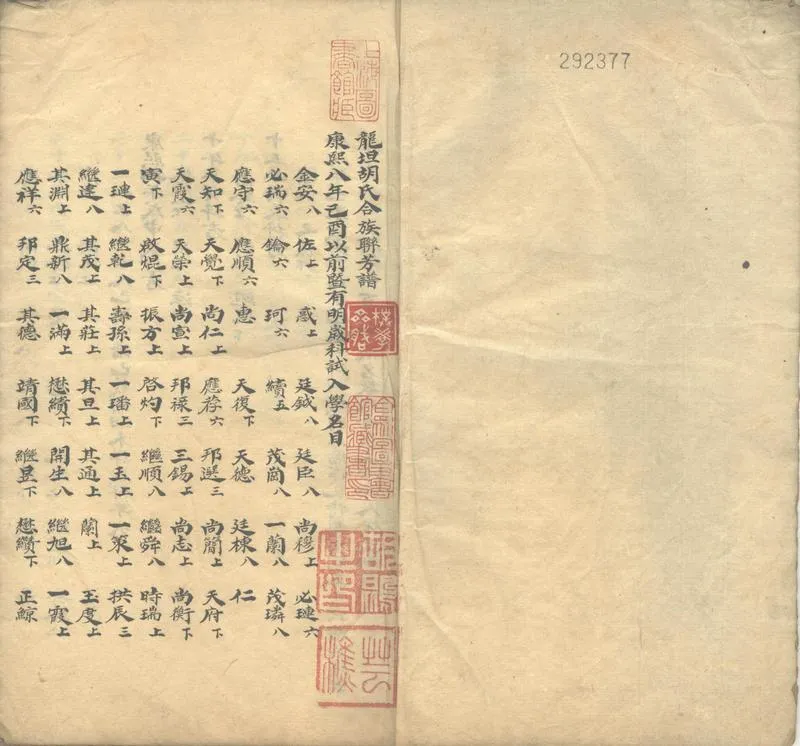 292377
上海圖書館藏
龍坦胡氏合族聯芳譜
康熙八年己酉以前暨有明歲科試入學名目
金安八 佐上 彧上 廷鉞八 廷臣八 尚穆上 必璉六
必瑞六 鑰六 珂六 續五 茂蘭八 一蘭八 茂璘八
應守六 應順六 惠 天復下 天德 廷棟八 仁
天知下 天覺下 尚仁上 應荐六 邦選三 尚簡上 天府下
天霞六 天榮上 尚宣上 邦祿三 三錫上 尚志上 尚衡下
寅下 啟焜下 振方上 啓灼下 繼順八 繼舜八 時瑞上
一璉上 繼乾八 壽孫上 一璠上 一玉上 一策上 拱辰三
繼達八 其茂上 其莊上 其旦上 其通上 蘭上 玉度上
其淵上 鼎新八 一滿上 懋績下 開生八 繼旭八 一霞上
應祥六 邦定三 其德 靖國下 繼昱下 懋纘下 正鯨